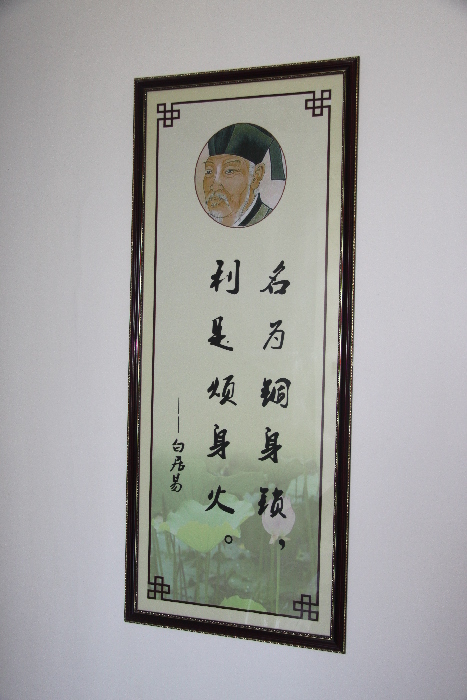 名为铜身锁，
利是烦身火。
——白居易